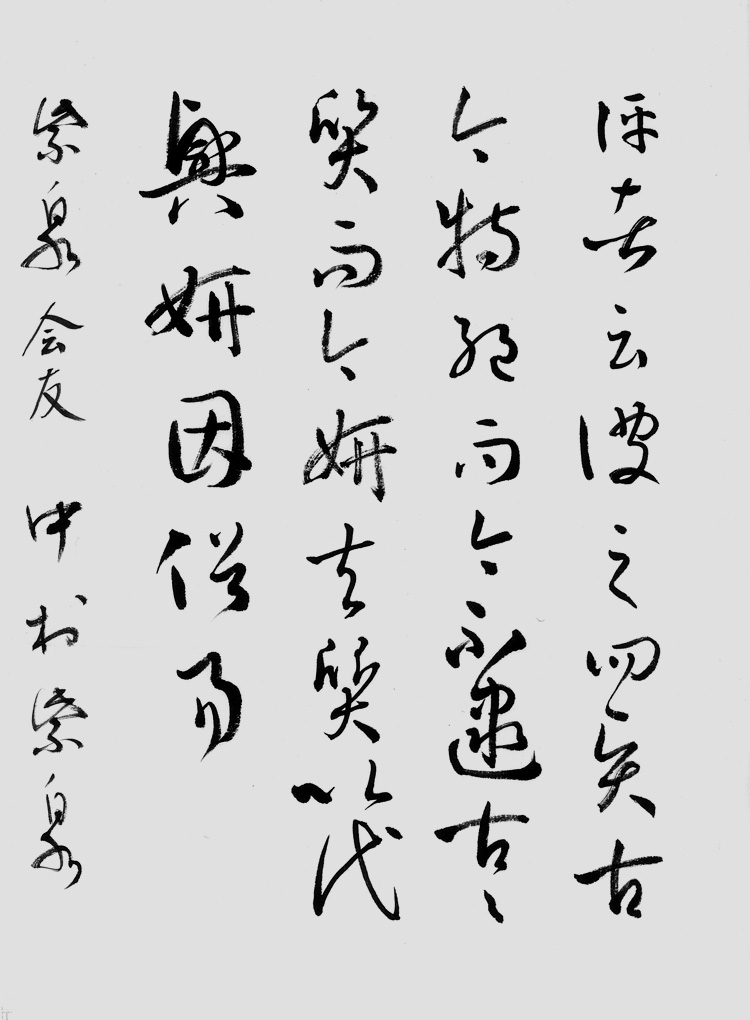 評者云彼之四賢古
今特絶而今不逮古々
質而今妍夫質以代
興妍因俗易
紫泉会友 中村紫泉